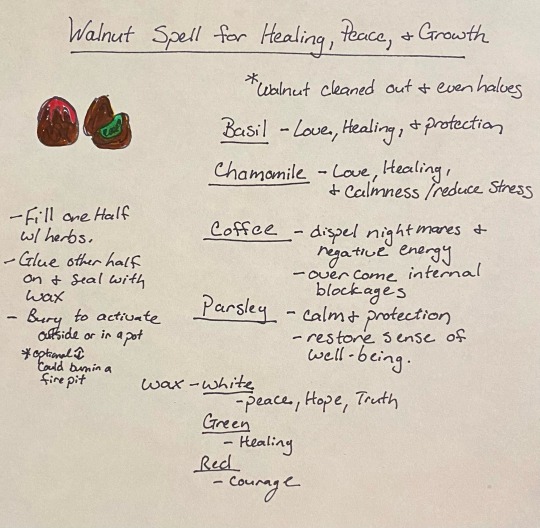 Walnut Spell for Healing, Peace, & Growth
*Walnut cleaned out & even halves
Basil - Love, Healing, & protection
Chamomile - Love, Healing,
& Calmness/reduce stress
Coffee - dispel nightmares &
negative energy
- overcome internal
blockages
Parsley - calm & protection
- restore sense of
well-being.
- Fill one Half
w/ herbs.
- Glue other half
on & seal with
wax
- Bury to activate
outside or in a pot
*optional
could burn in a
fire pit
wax - white
- peace, Hope, Truth
Green
- Healing
Red
- courage